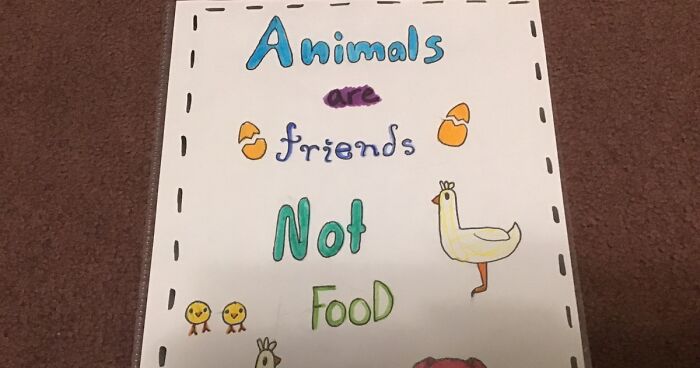 Animals
are
friends
Not
FOOD